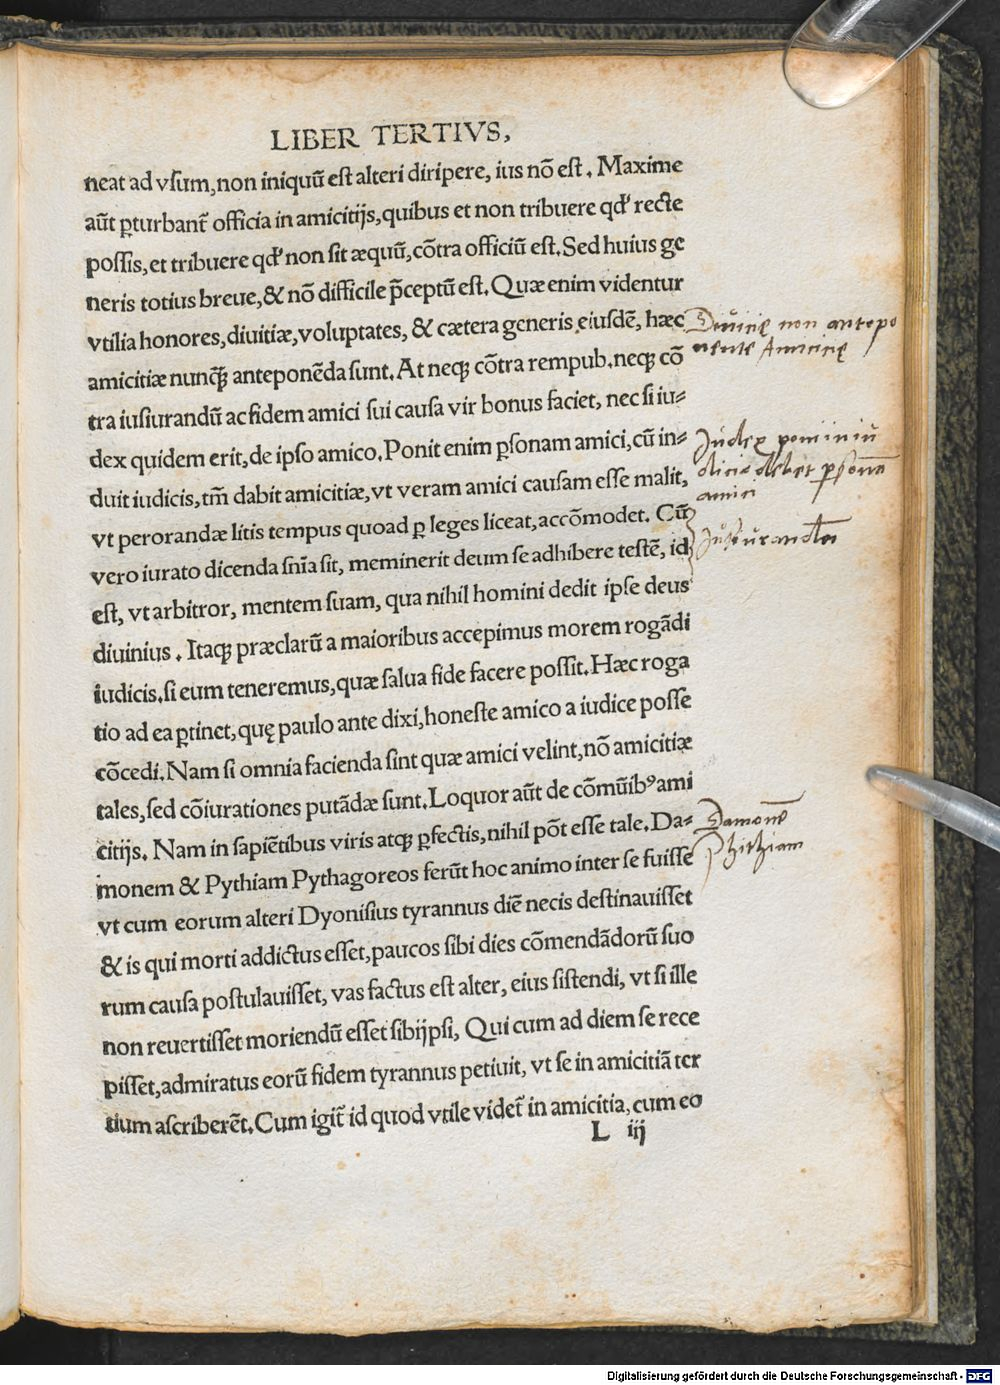 LIBER TERTIVS,
neat ad vsum, non iniquũ est alteri diripere, ius nõ est. Maxime
aũt ꝑturbant̃ officia in amicitijs, quibus et non tribuere qđ recte
possis, et tribuere qđ non sit æquũ, cõtra officiũ est. Sed huius ge
neris totius breue, & nõ difficile p̃ceptũ est. Quæ enim videntur
vtilia honores, diuitiæ, voluptates, & cætera generis eiusdẽ, hæc
amicitiæ nunq̃ anteponẽda sunt. At neqꝫ cõtra rempub. neqꝫ cõ
tra iusiurandũ ac fidem amici sui causa vir bonus faciet, nec si iu⸗
dex quidem erit, de ipso amico. Ponit enim ꝑsonam amici, cũ in⸗
duit iudicis, tm̃ dabit amicitiæ, vt veram amici causam esse malit,
vt perorandæ litis tempus quoad ꝑ leges liceat, accõmodet. Cũ
vero iurato dicenda sñia sit, meminerit deum se adhibere testẽ, id
est, vt arbitror, mentem suam, qua nihil homini dedit ipse deus
diuinius. Itaqꝫ præclarũ a maioribus accepimus morem rogãdi
iudicis, si eum teneremus, quæ salua fide facere possit. Hæc roga
tio ad ea ꝑtinet, quę paulo ante dixi, honeste amico a iudice posse
cõcedi. Nam si omnia facienda sint quæ amici velint, nõ amicitiæ
tales, sed cõiurationes putãdæ sunt. Loquor aũt de cõmũibꝰ ami
citijs. Nam in sapiẽtibus viris atqꝫ ꝑfectis, nihil põt esse tale. Da⸗
monem & Pythiam Pythagoreos ferũt hoc animo inter se fuisse
vt cum eorum alteri Dyonisius tyrannus diẽ necis destinauisset
& is qui morti addictus esset, paucos sibi dies cõmendãdorũ suo
rum causa postulauisset, vas factus est alter, eius sistendi, vt si ille
non reuertisset moriendũ esset sibijpsi, Qui cum ad diem se rece
pisset, admiratus eorũ fidem tyrannus petiuit, vt se in amicitiã ter
tium ascriberẽt. Cum igit̃ id quod vtile videt̃ in amicitia, cum eo
L iij
Diuicię non antepo
nente Amicicię
Iudex
debet ꝑsonã
amici
Iusiurandũ
Damonẽ
Phithiam
Digitalisierung gefördert durch die Deutsche Forschungsgemeinschaft - DFG